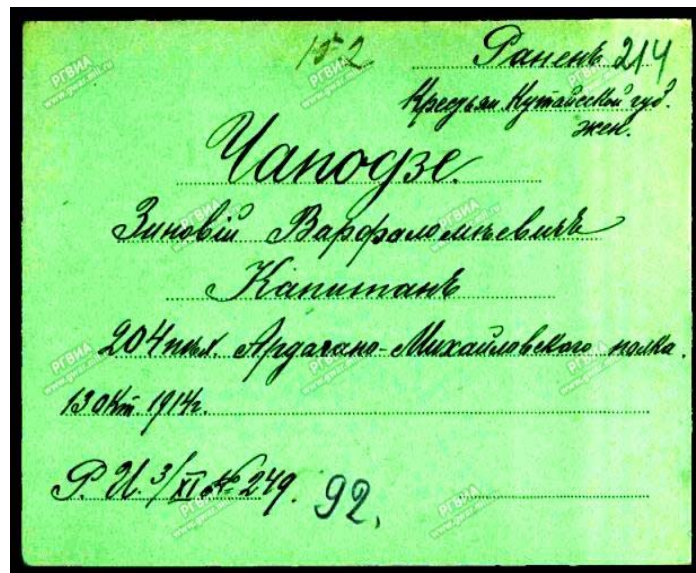 152 Раненъ 214
Крестьян Кутаисской губ.
жен.
Чаподзе.
Зиновій Варфаломѣевичъ
Капитанъ
204 пѣх. Ардагано-Михайловскаго полка.
13 Окт. 1914г.
Р. И. 3/XI № 249. 92.
РГВИА
www.gwar.mil.ru